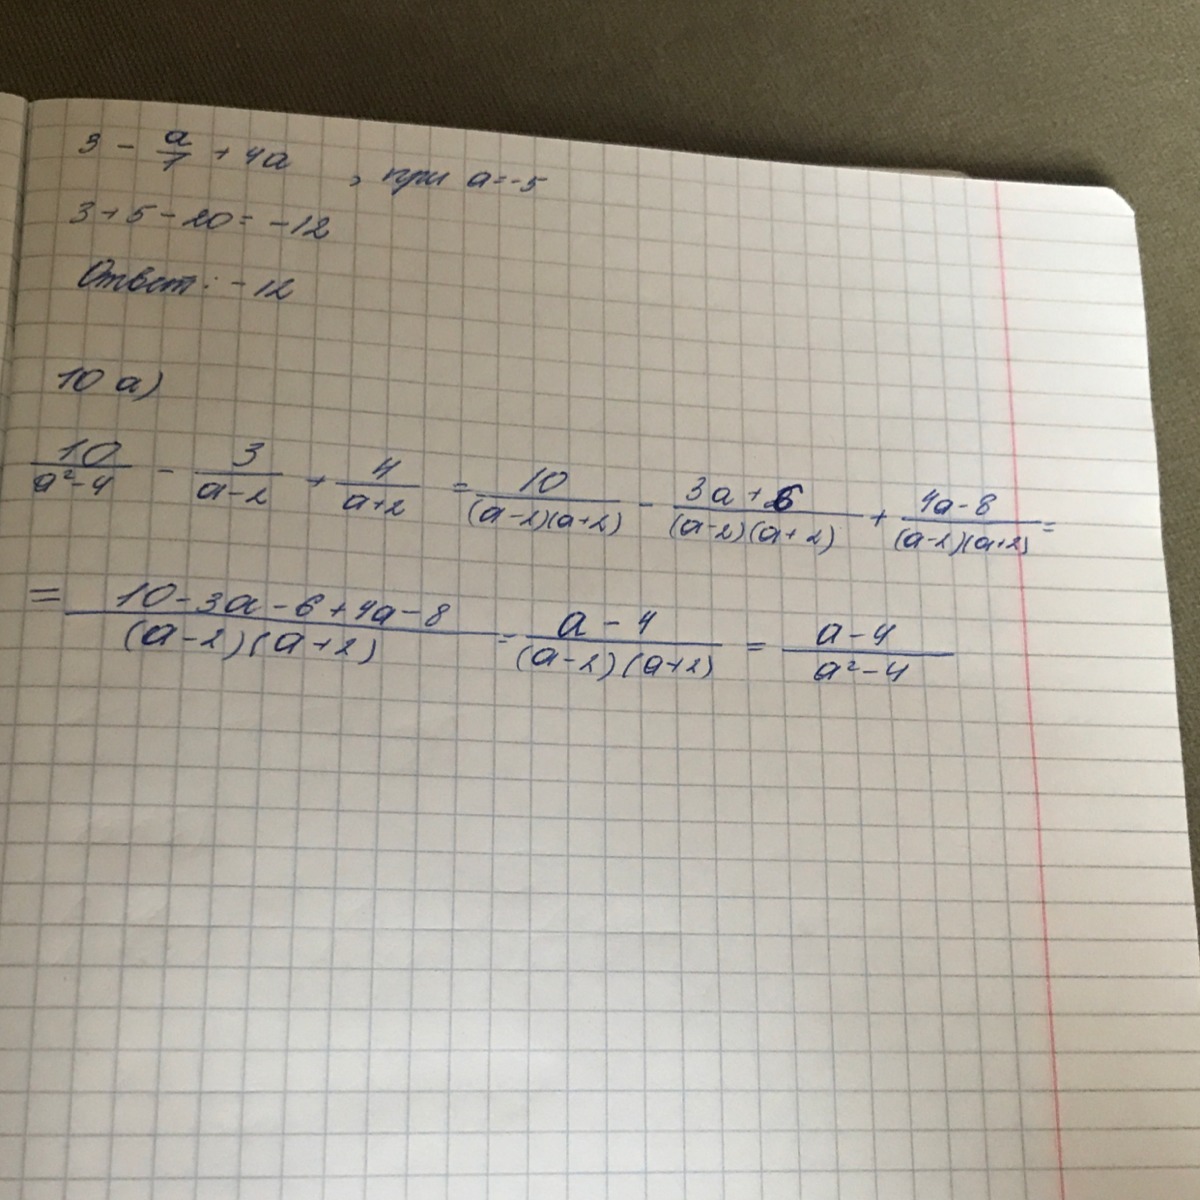 3 - a/7 + 4a , при a=-5
3+5-20= -12
Ответ: -12
10 а)
10/(a²-4) - 3/(a-2) + 4/(a+2) = 10/((a-2)(a+2)) - (3a+6)/((a-2)(a+2)) + (4a-8)/((a-2)(a+2)) =
= (10-3a-6+4a-8)/((a-2)(a+2)) = (a-4)/((a-2)(a+2)) = (a-4)/(a²-4)